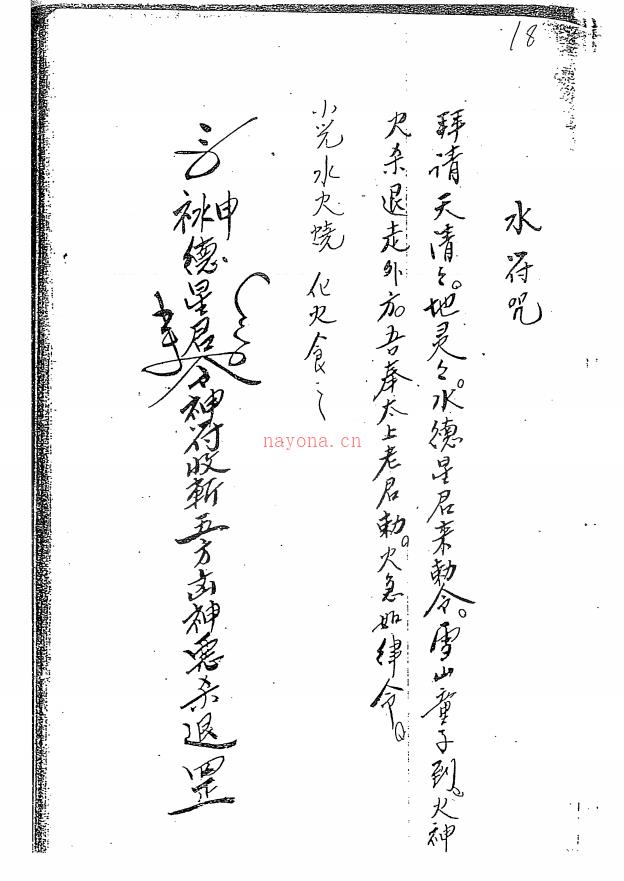 18
水符咒
拜请天清々。地灵々。水德星君来勅令。雪山童子到。火神
火杀退走外方。吾奉太上老君勅。火急如律令。
小儿水火烧 化火食之
神德星君令神符收斬五方凶神恶杀退罡
nayona.cn